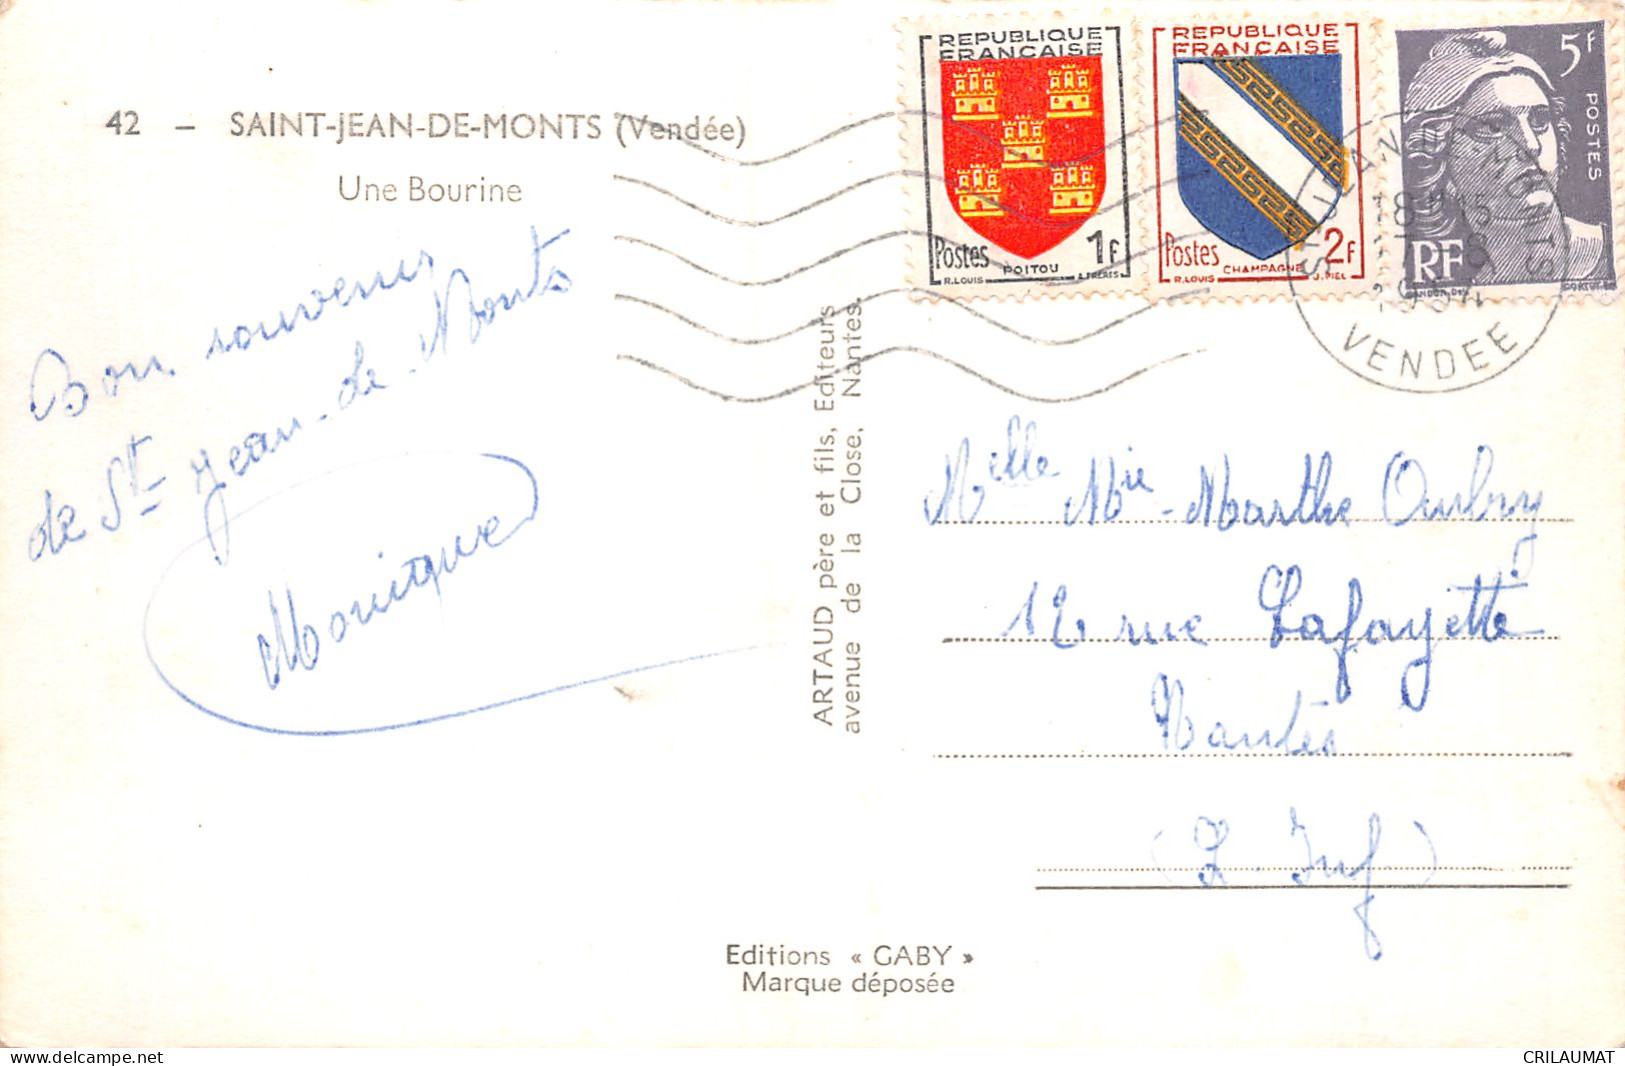 42 — SAINT-JEAN-DE-MONTS (Vendée)
Une Bourine
Bon souvenir
de St- Jean-de-Monts
Monique
ARTAUD père et fils, Editeurs
avenue de la Close, Nantes.
REPUBLIQUE
FRANÇAISE
Postes 1F
POITOU
R.LOUIS A.FRERES
REPUBLIQUE
FRANÇAISE
Postes 2F
CHAMPAGNE
R.LOUIS J.PIEL
5F
POSTES
RF
VENDEE
Melle Mie-Marthe Aubry
12 rue Lafayette
Nantes
(L. Inf)
Editions « GABY »
Marque déposée
https://www.delcampe.net
CRILAUMAT